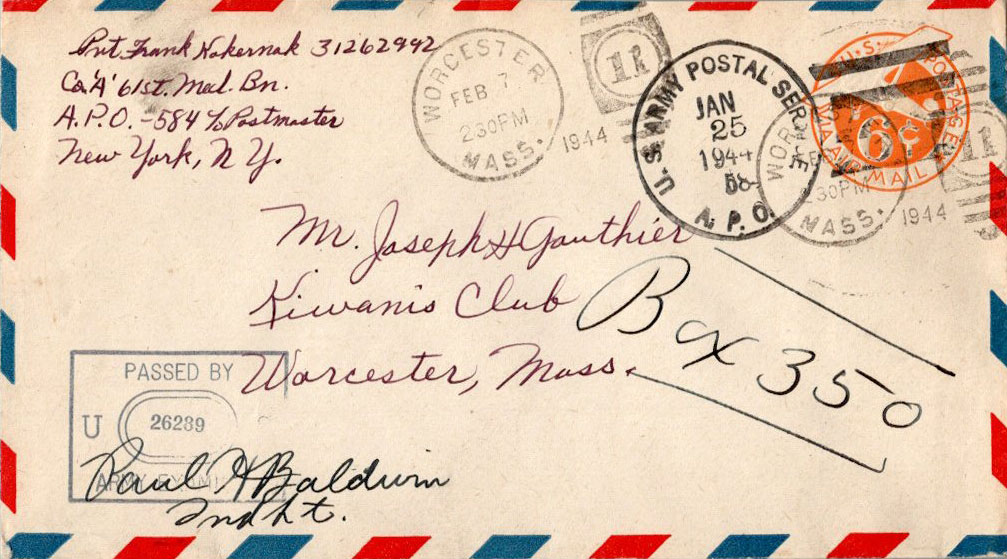 Pvt. Frank Nokernak 31262992
Co. "A" 61st. Med. Bn.
A.P.O. - 584 c/o Postmaster
New York, N.Y.
WORCESTER
FEB 7
230 PM
1944
MASS.
11
U.S. ARMY POSTAL SERVICE
JAN
25
1944
A.P.O.
U.S. POSTAGE
6¢
VIA AIR MAIL
WORCE
30 PM
MASS.
1944
11
Mr. Joseph H Gauthier
Kiwanis Club
Worcester, Mass.
Box 350
PASSED BY
U
26289
ARMY EXAMI
Paul H Baldwin
2nd Lt.